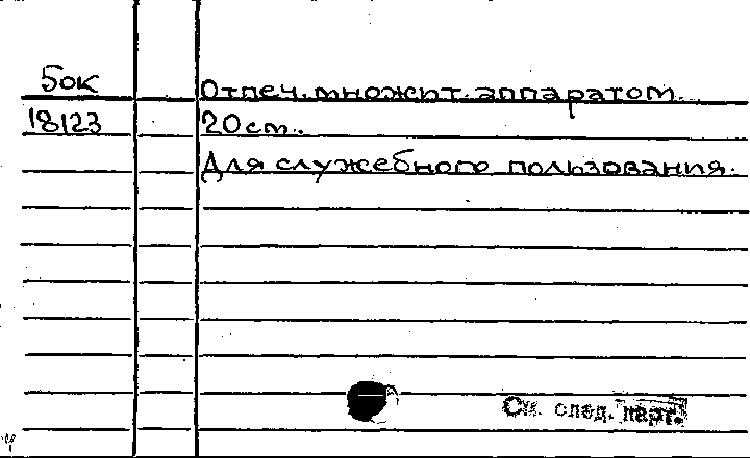 бок
Отпеч. множит. аппаратом.
18123
20 см.
Для служебного пользования.
См. след. карт.